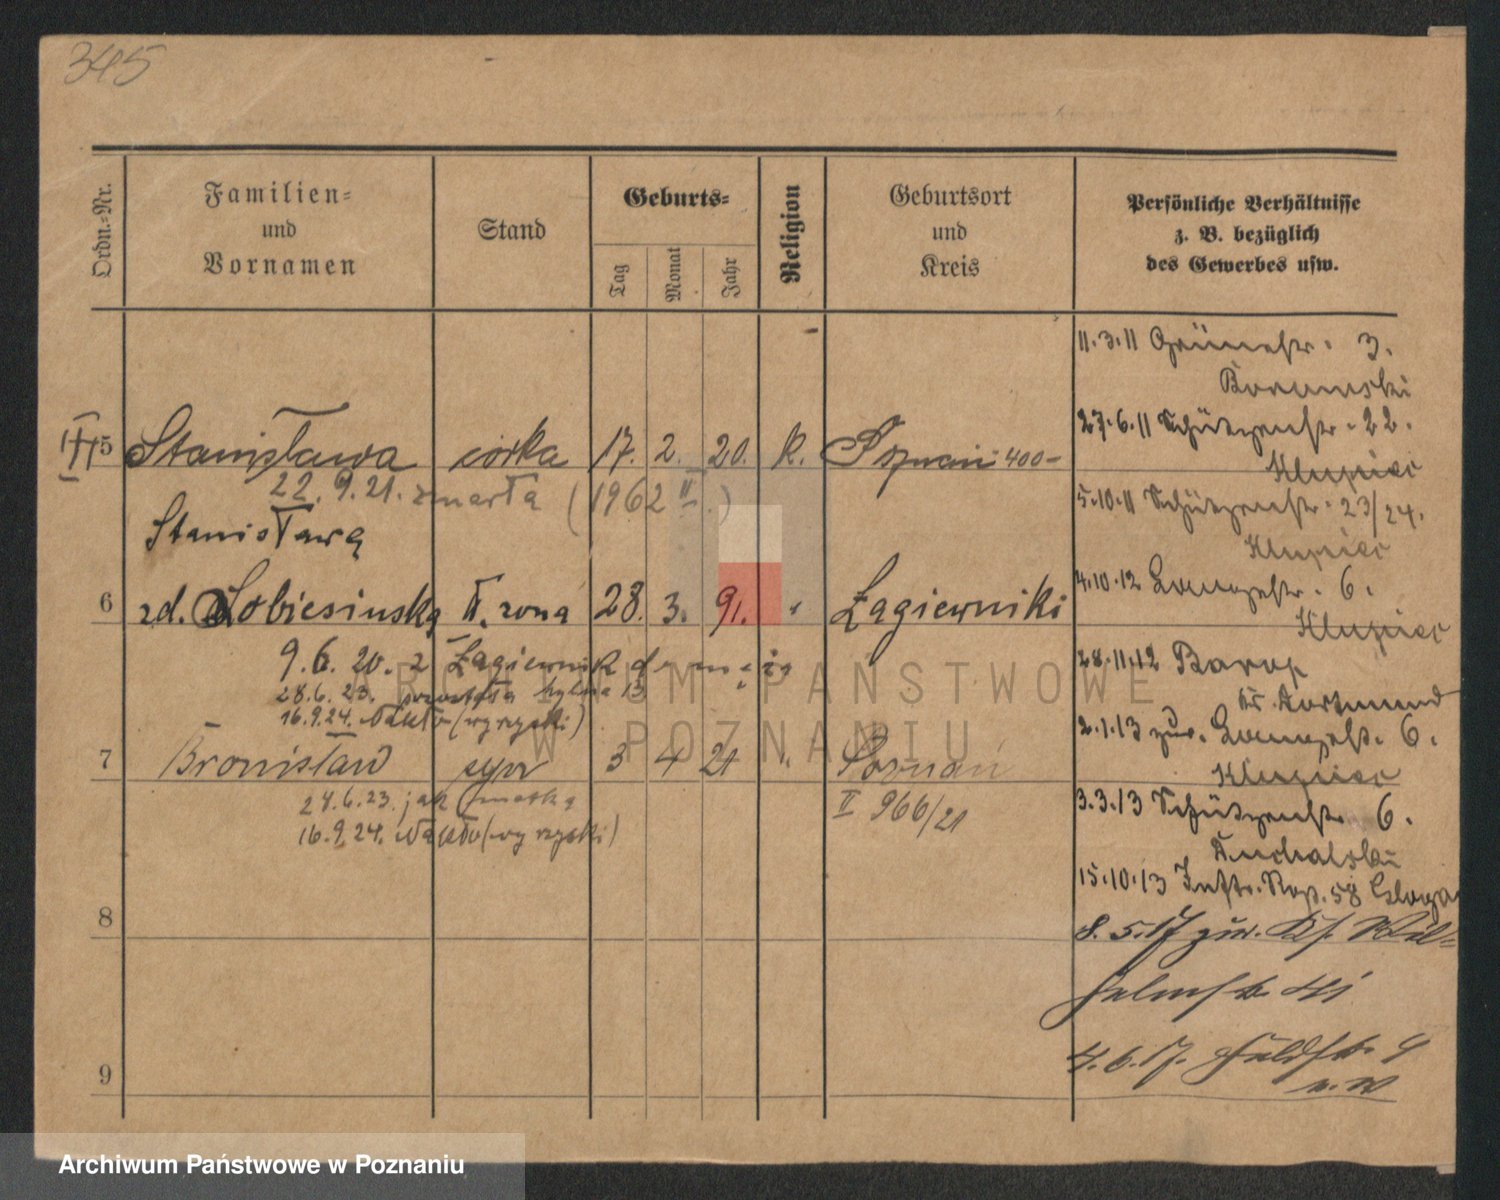 345
Ordn.-Nr.
Familien-
und
Vornamen
Stand
Geburts-
Tag
Monat
Jahr
Religion
Geburtsort
und
Kreis
Persönliche Verhältnisse
z. B. bezüglich
des Gewerbes usw.
5 Stanisława córka 17. 2. 20. K. Poznań 400-
22. 9. 21. zmarła (1962 II.)
Stanisława
6 zd. Sobiesińska II. żona 28. 3. 91. " Łagiewniki
9.6. 20. z Łagiewnik
28.6. 23. 13
16.9.24. Nakło (wyrzyski)
7 Bronisław syn 3 4 21 " Poznań
24.6.23. jak matka
II 966/21
16.9.24. Nakło (wyrzyski)
8
9
11.3.11 Grünestr. 3.
27.6.11 Schützenstr. 22.
5.10.11 Schützenstr. 23/24.
4.10.12 Langestr. 6.
28.11.12 Barop
Kr. Dortmund
2.1.13 zur. Langestr. 6.
3.3.13 Schützenstr. 6.
15.10.13 Inftr. Rgt. 58 Glogau
8.5.17 zur. Wil-
helmstr. 41
4.6.17. Feldstr. 9
ARCHIWUM PAŃSTWOWE
W POZNANIU
Archiwum Państwowe w Poznaniu